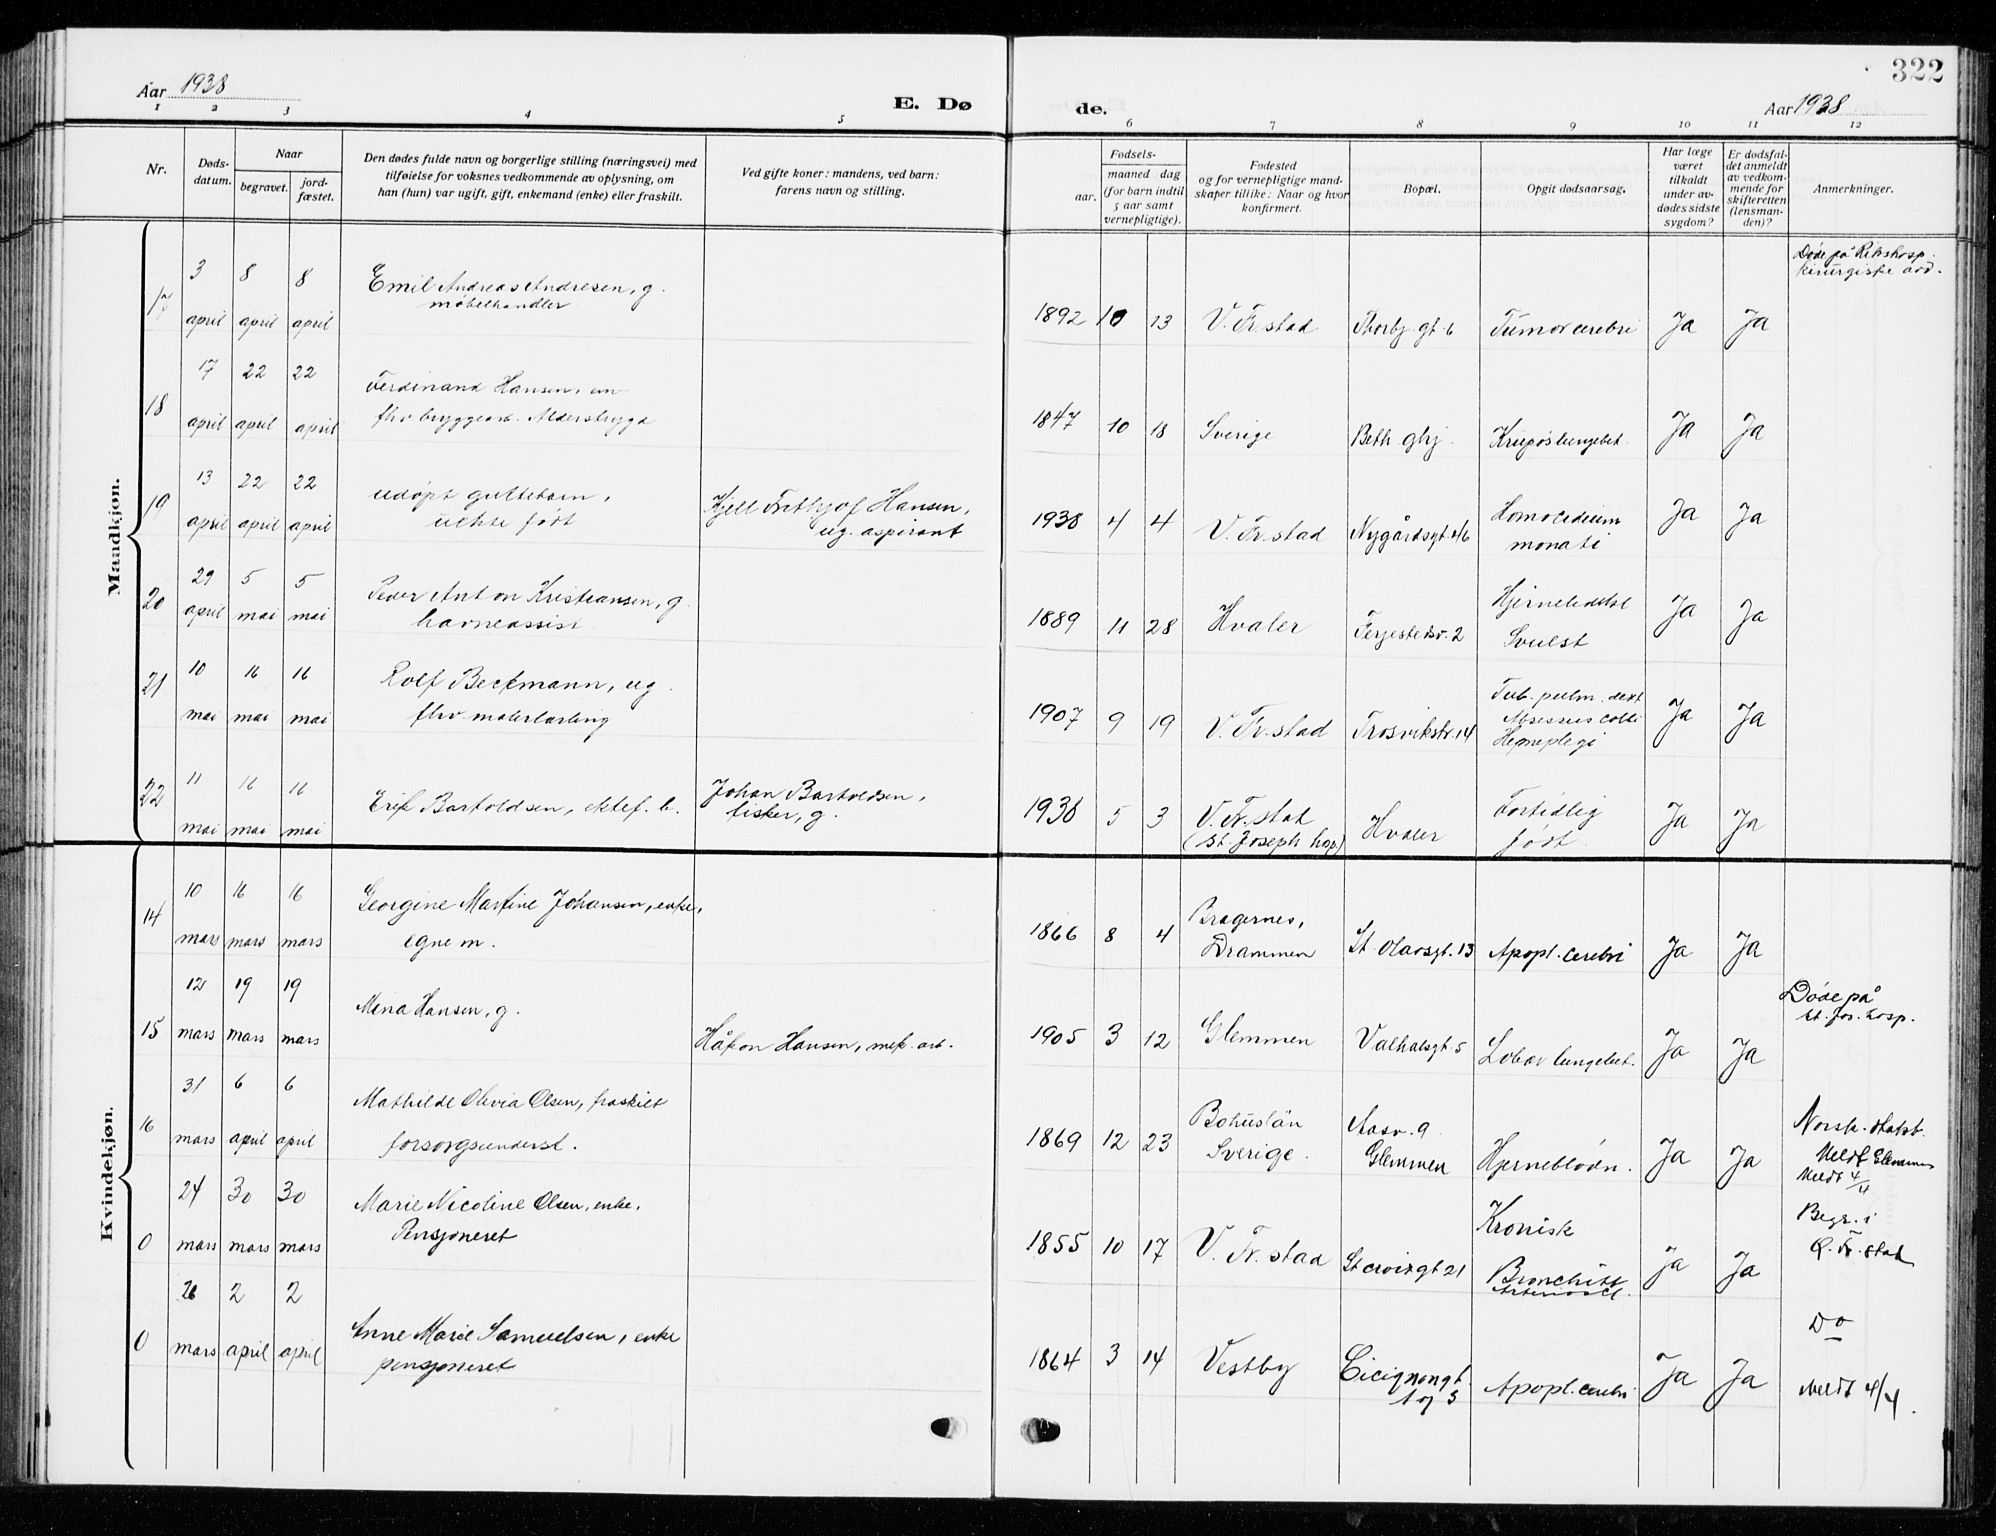 322
Aar 1938
E. Dø
de.
Aar 1938
1 2 3 4 5 6 7 8 9 10 11 12
Nr.
Døds-
datum.
Naar
begravet.
jord-
fæstet.
Den dødes fulde navn og borgerlige stilling (næringsvei) med
tilføielse for voksnes vedkommende av oplysning, om
han (hun) var ugift, gift, enkemand (enke) eller fraskilt.
Ved gifte koner: mandens, ved barn:
farens navn og stilling.
Fødsels-
aar.
maaned dag
(for barn indtil
5 aar samt
vernepligtige).
Fødested
og for vernepligtige mand-
skaper tillike: Naar og hvor
konfirmert.
Bopæl.
Opgit dødsaarsag.
Har læge
været
tilkaldt
under av-
dødes sidste
sygdom?
Er dødsfal-
det anmeldt
av vedkom-
mende for
skifteretten
(lensman-
den)?
Anmerkninger.
Mandkjøn.
17
3 8 8
april april april
Emil Andreas Andresen, g.
møbelhandler
1892 10 13 V. Fr.stad Thorbj.gt. 6 Tumor cerebri Ja Ja
Døde på Rikshosp.
kirurgiske avd.
18
17 22 22
april april april
Ferdinand Hansen, em
fhv. bryggearb. Alderstrygd
1847 10 18 Sverige Beth. ghj. Krupøs lungebet. Ja Ja
19
13 22 22
april april april
udøpt guttebarn,
uekte født
Kjell Frithjof Hansen,
ug. aspirant
1938 4 4 V. Fr.stad Nygårdsgt. Ja Ja
20
29 5 5
april mai mai
Peder Anton Kristiansen, g.
havneassist.
1889 11 28 Hvaler Ferjestedsv. 2 Ja Ja
Svulst
21
10 16 16
mai mai mai
Rolf Beckmann, ug.
fhv. malerlærling
1907 9 19 V. Fr.stad Trosvikstr. 14 Ja Ja
Tub. pulm. dext
Hemiplegi
22
11 16 16
mai mai mai
Erik Bartoldsen, ektef. b.
Johan Bartoldsen,
fisker, g.
1938 5 3 V. Fr.stad Hvaler Fortidlig Ja Ja
(St. Joseph hosp.) født.
Kvindekjøn.
14
10 16 16
mars mars mars
Georgine Martine Johansen, enke,
egne m.
1866 8 4 Bragernes,
Drammen St. Olavsgt. 13 Apopl. cerebri Ja Ja
15
12 19 19
mars mars mars
Mina Hansen, g.
Håkon Hansen, mek. arb.
1905 3 12 Glemmen Valhalsgt. 5 Lobær lungebet. Ja Ja
Døde på
St. Jos. hosp.
16
31 6 6
mars april april
Mathilde Olivia Olsen, fraskilt
forsorgsunderst.
1869 12 23 Bohuslän
Sverige.
Aasv. 9
Glemmen Hjerneblødn. Ja Ja
Norsk statsb.
Meldt Glemmen
Meldt 4/4
0
24 30 30
mars mars mars
Marie Nicoline Olsen, enke,
Pensjoneret
1855 10 17 V. Fr.stad St croixgt 21 Kronisk
Bronchitt
Ja Ja
Begr. i
Fr.stad
0
26 2 2
mars april april
Anne Marie Samuelsen, enke
pensjoneret
1864 3 14 Vestby Cicignongt. Apopl. cerebri Ja Ja
Do
Meldt 4/4.